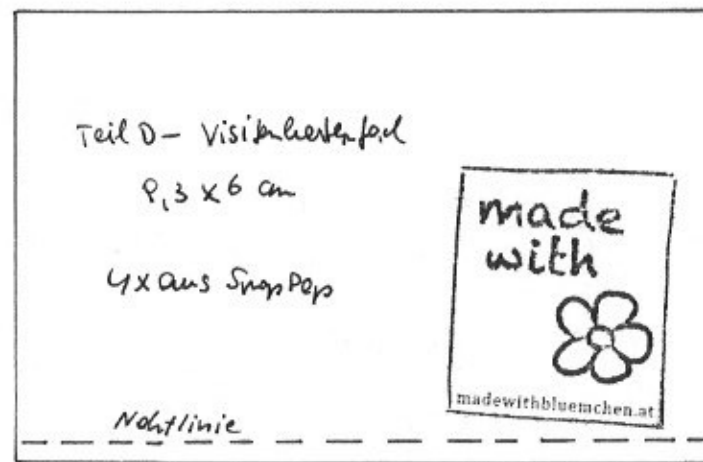 Teil D - Visitenkartenfach
8,3 x 6 cm
4x aus SnapPap
made
with
madewithbluemchen.at
Nahtlinie